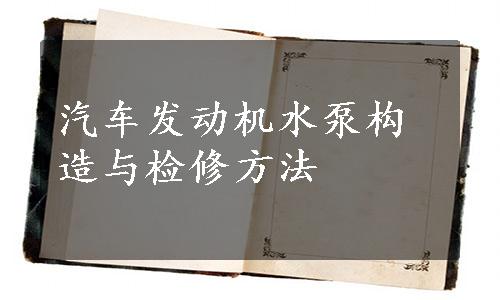 汽车发动机水泵构
造与检修方法